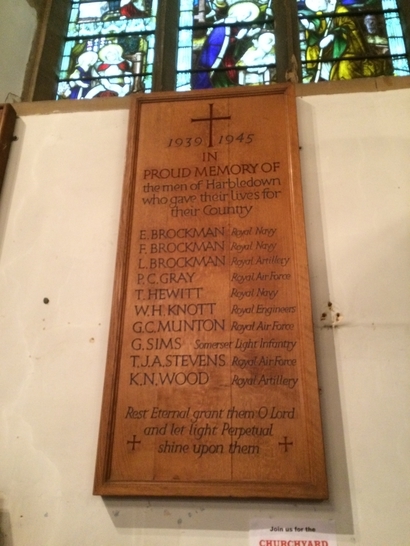 1939 1945
IN
PROUD MEMORY OF
the men of Harbledown
who gave their lives for
their Country
E. BROCKMAN Royal Navy
F. BROCKMAN Royal Navy
L. BROCKMAN Royal Artillery
P. C. GRAY Royal Air Force
T. HEWITT Royal Navy
W. H. KNOTT Royal Engineers
G. C. MUNTON Royal Air Force
G. SIMS Somerset Light Infantry
T. J. A. STEVENS Royal Air Force
K. N. WOOD Royal Artillery
Rest Eternal grant them O Lord
and let light Perpetual
shine upon them
Join us for the
CHURCHYARD